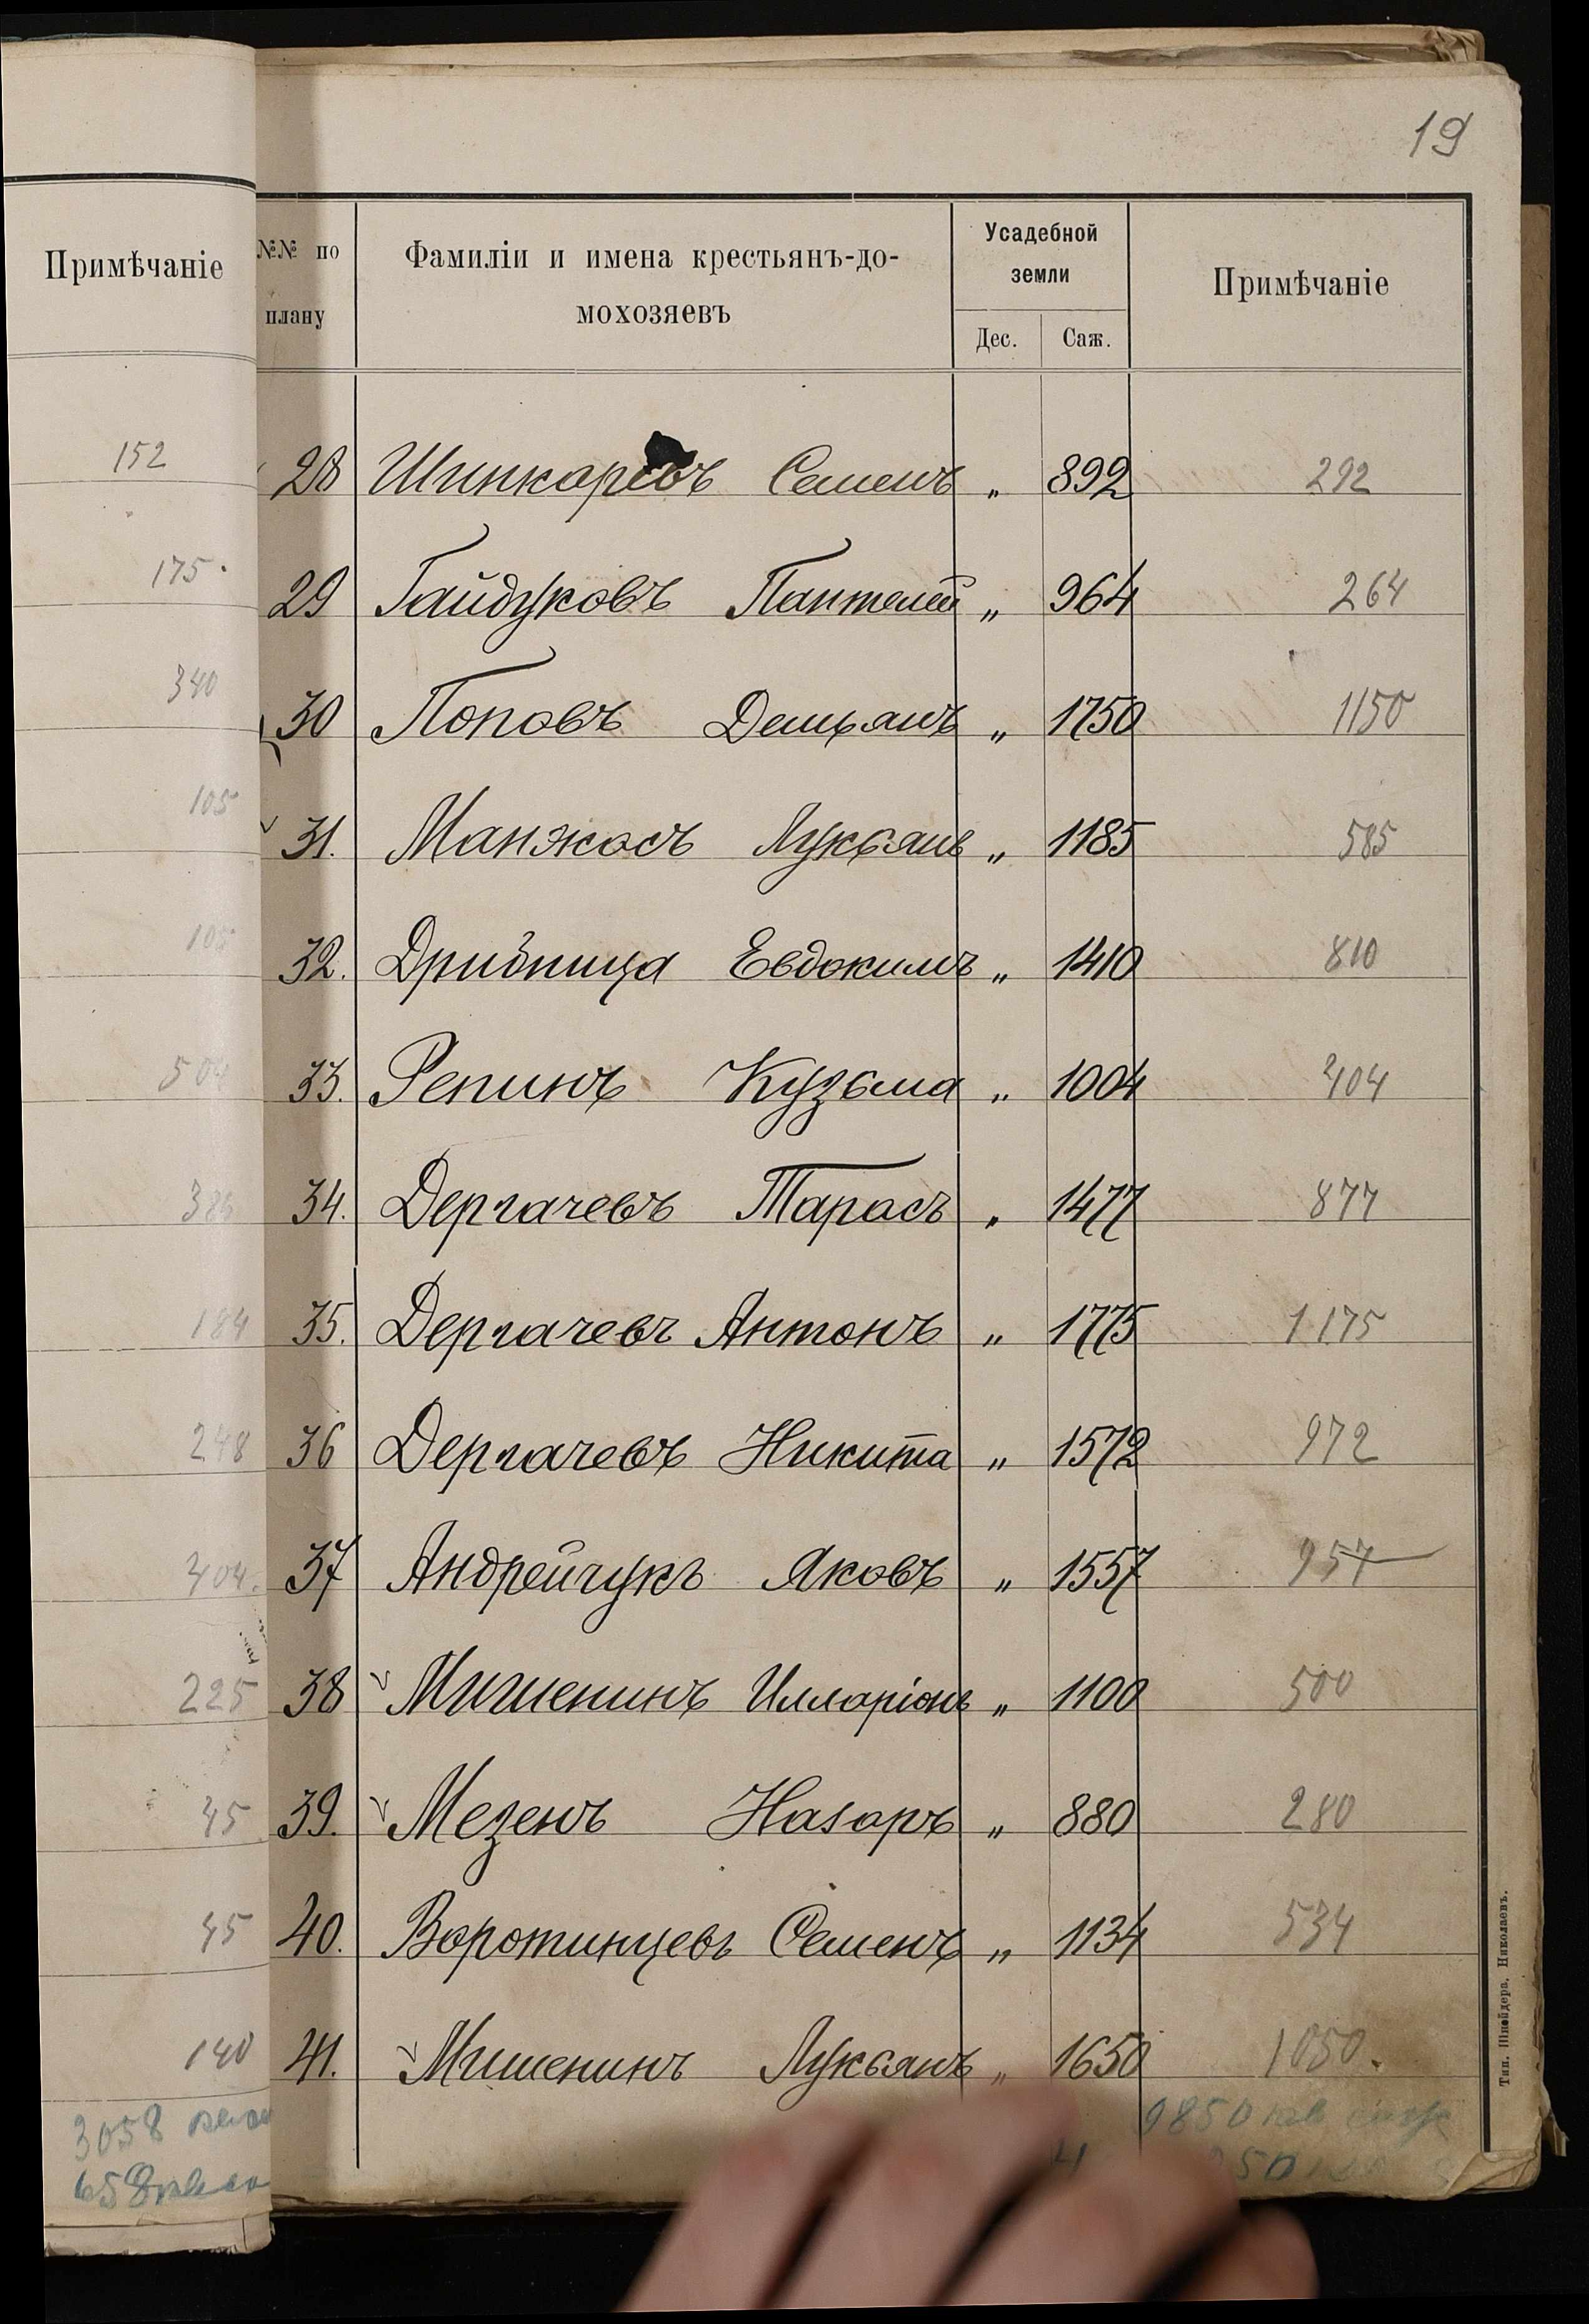 19
Примѣчаніе
152
175.
340
105
105
504
184
248
404.
225
45
45
140
3058
658
№№ по плану Фамиліи и имена крестьянъ-до- Усадебной земли Примѣчаніе
мохозяевъ Дес. Саж.
28 Шинкарёвъ Семенъ „ 892 292
29 Гайдуковъ Пантелей „ 964 264
30 Поповъ Демьянъ „ 1750 1150
31. Манжосъ Лукьянъ „ 1185 585
32. Дрибница Евдокимъ „ 1410 810
33. Репинъ Кузьма „ 1004 404
34. Дергачевъ Тарасъ „ 1477 877
35. Дергачевъ Антонъ „ 1775 1175
36 Дергачевъ Никита „ 1572 972
37 Андрейчукъ Яковъ „ 1557 957
38 Мишенинъ Илларіонъ „ 1100 500
39. Мезенъ Назаръ „ 880 280
40. Воротинцевъ Семенъ „ 1134 534
41. Мишенинъ Лукьянъ „ 1650 1050.
9850 кв саж
Тип. Шнейдера, Николаевъ.